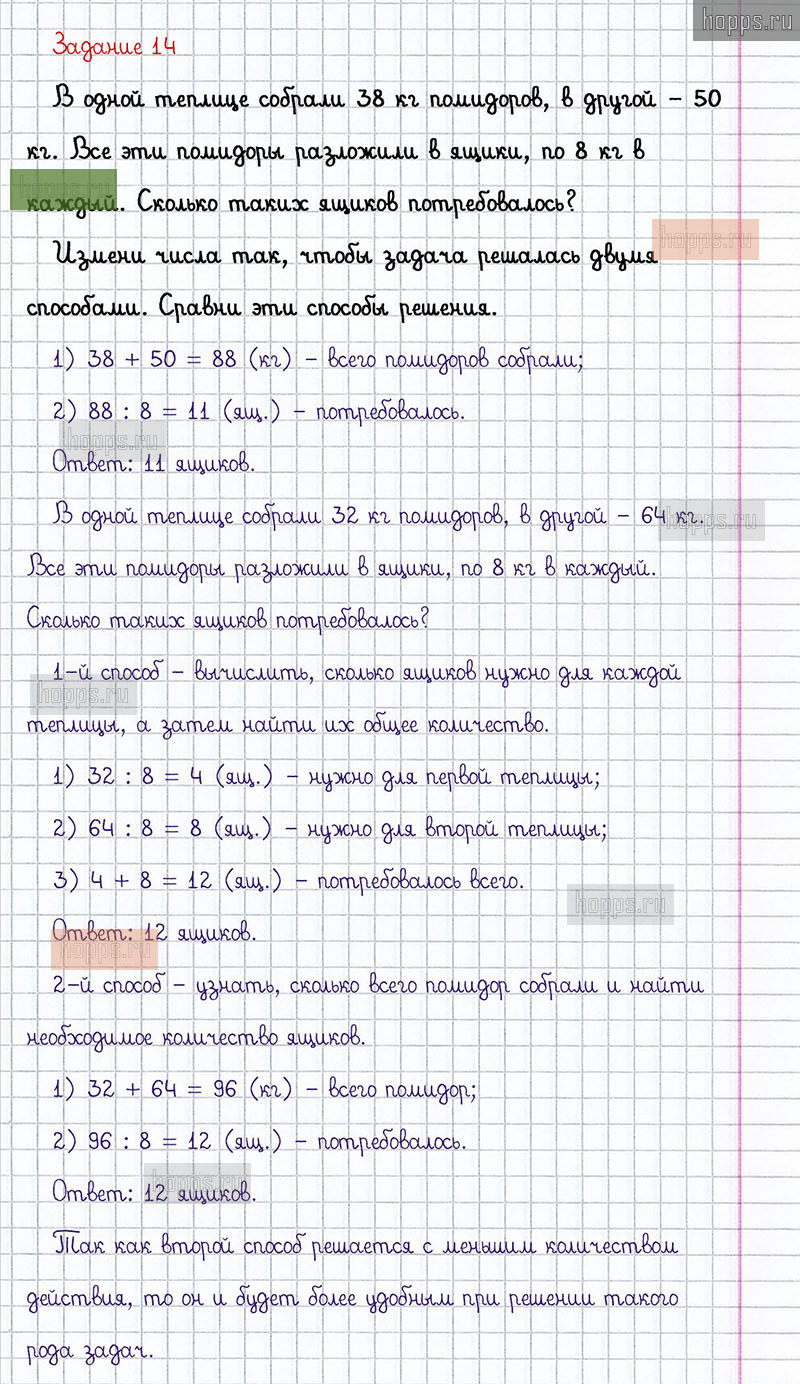 hopps.ru
Задание 14
В одной теплице собрали 38 кг помидоров, в другой – 50
кг. Все эти помидоры разложили в ящики, по 8 кг в
hopps.ru
каждый. Сколько таких ящиков потребовалось?
hopps.ru
Измени числа так, чтобы задача решалась двумя
способами. Сравни эти способы решения.
1) 38 + 50 = 88 (кг) – всего помидоров собрали;
2) 88 : 8 = 11 (ящ.) – потребовалось.
hopps.ru
Ответ: 11 ящиков.
В одной теплице собрали 32 кг помидоров, в другой – 64 кг.
hopps.ru
Все эти помидоры разложили в ящики, по 8 кг в каждый.
Сколько таких ящиков потребовалось?
1-й способ – вычислить, сколько ящиков нужно для каждой
hopps.ru
теплицы, а затем найти их общее количество.
1) 32 : 8 = 4 (ящ.) – нужно для первой теплицы;
2) 64 : 8 = 8 (ящ.) – нужно для второй теплицы;
3) 4 + 8 = 12 (ящ.) – потребовалось всего.
hopps.ru
Ответ: 12 ящиков.
hopps.ru
2-й способ – узнать, сколько всего помидор собрали и найти
необходимое количество ящиков.
1) 32 + 64 = 96 (кг) – всего помидор;
2) 96 : 8 = 12 (ящ.) – потребовалось.
hopps.ru
Ответ: 12 ящиков.
Так как второй способ решается с меньшим количеством
действия, то он и будет более удобным при решении такого
рода задач.